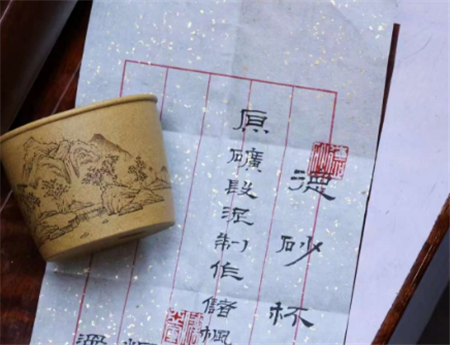 德砂杯
原礦段泥制作儲楓